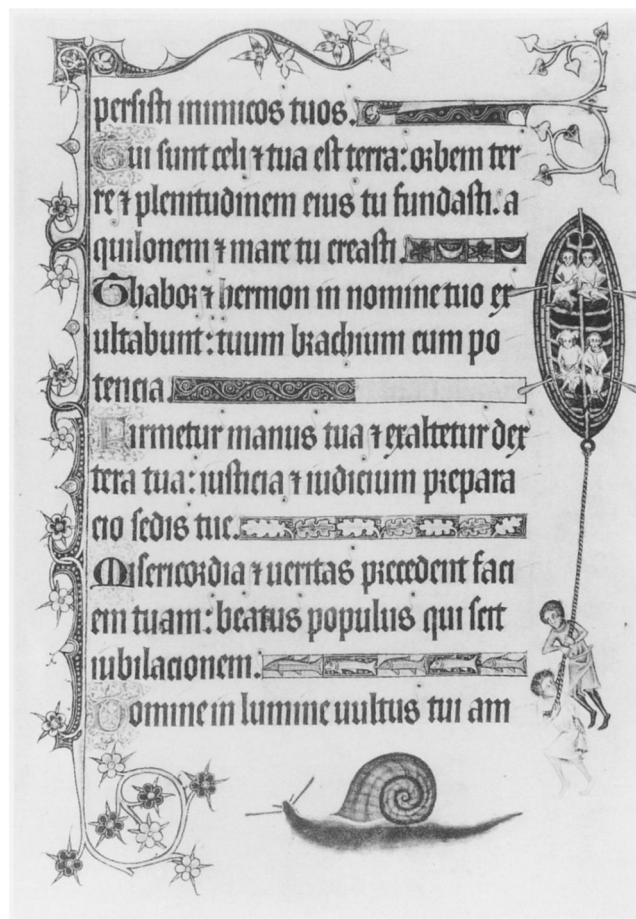 persisti inimicos tuos.
Tui sunt celi ⁊ tua est terra: orbem ter
re ⁊ plenitudinem eius tu fundasti. a
quilonem ⁊ mare tu creasti.
Thabor ⁊ hermon in nomine tuo ex
ultabunt: tuum brachium cum po
tencia.
Firmetur manus tua ⁊ exaltetur dex
tera tua: iusticia ⁊ iudicium prepara
cio sedis tue.
Misericordia ⁊ ueritas precedent faci
em tuam: beatus populus qui scit
iubilacionem.
Domine in lumine uultus tui am